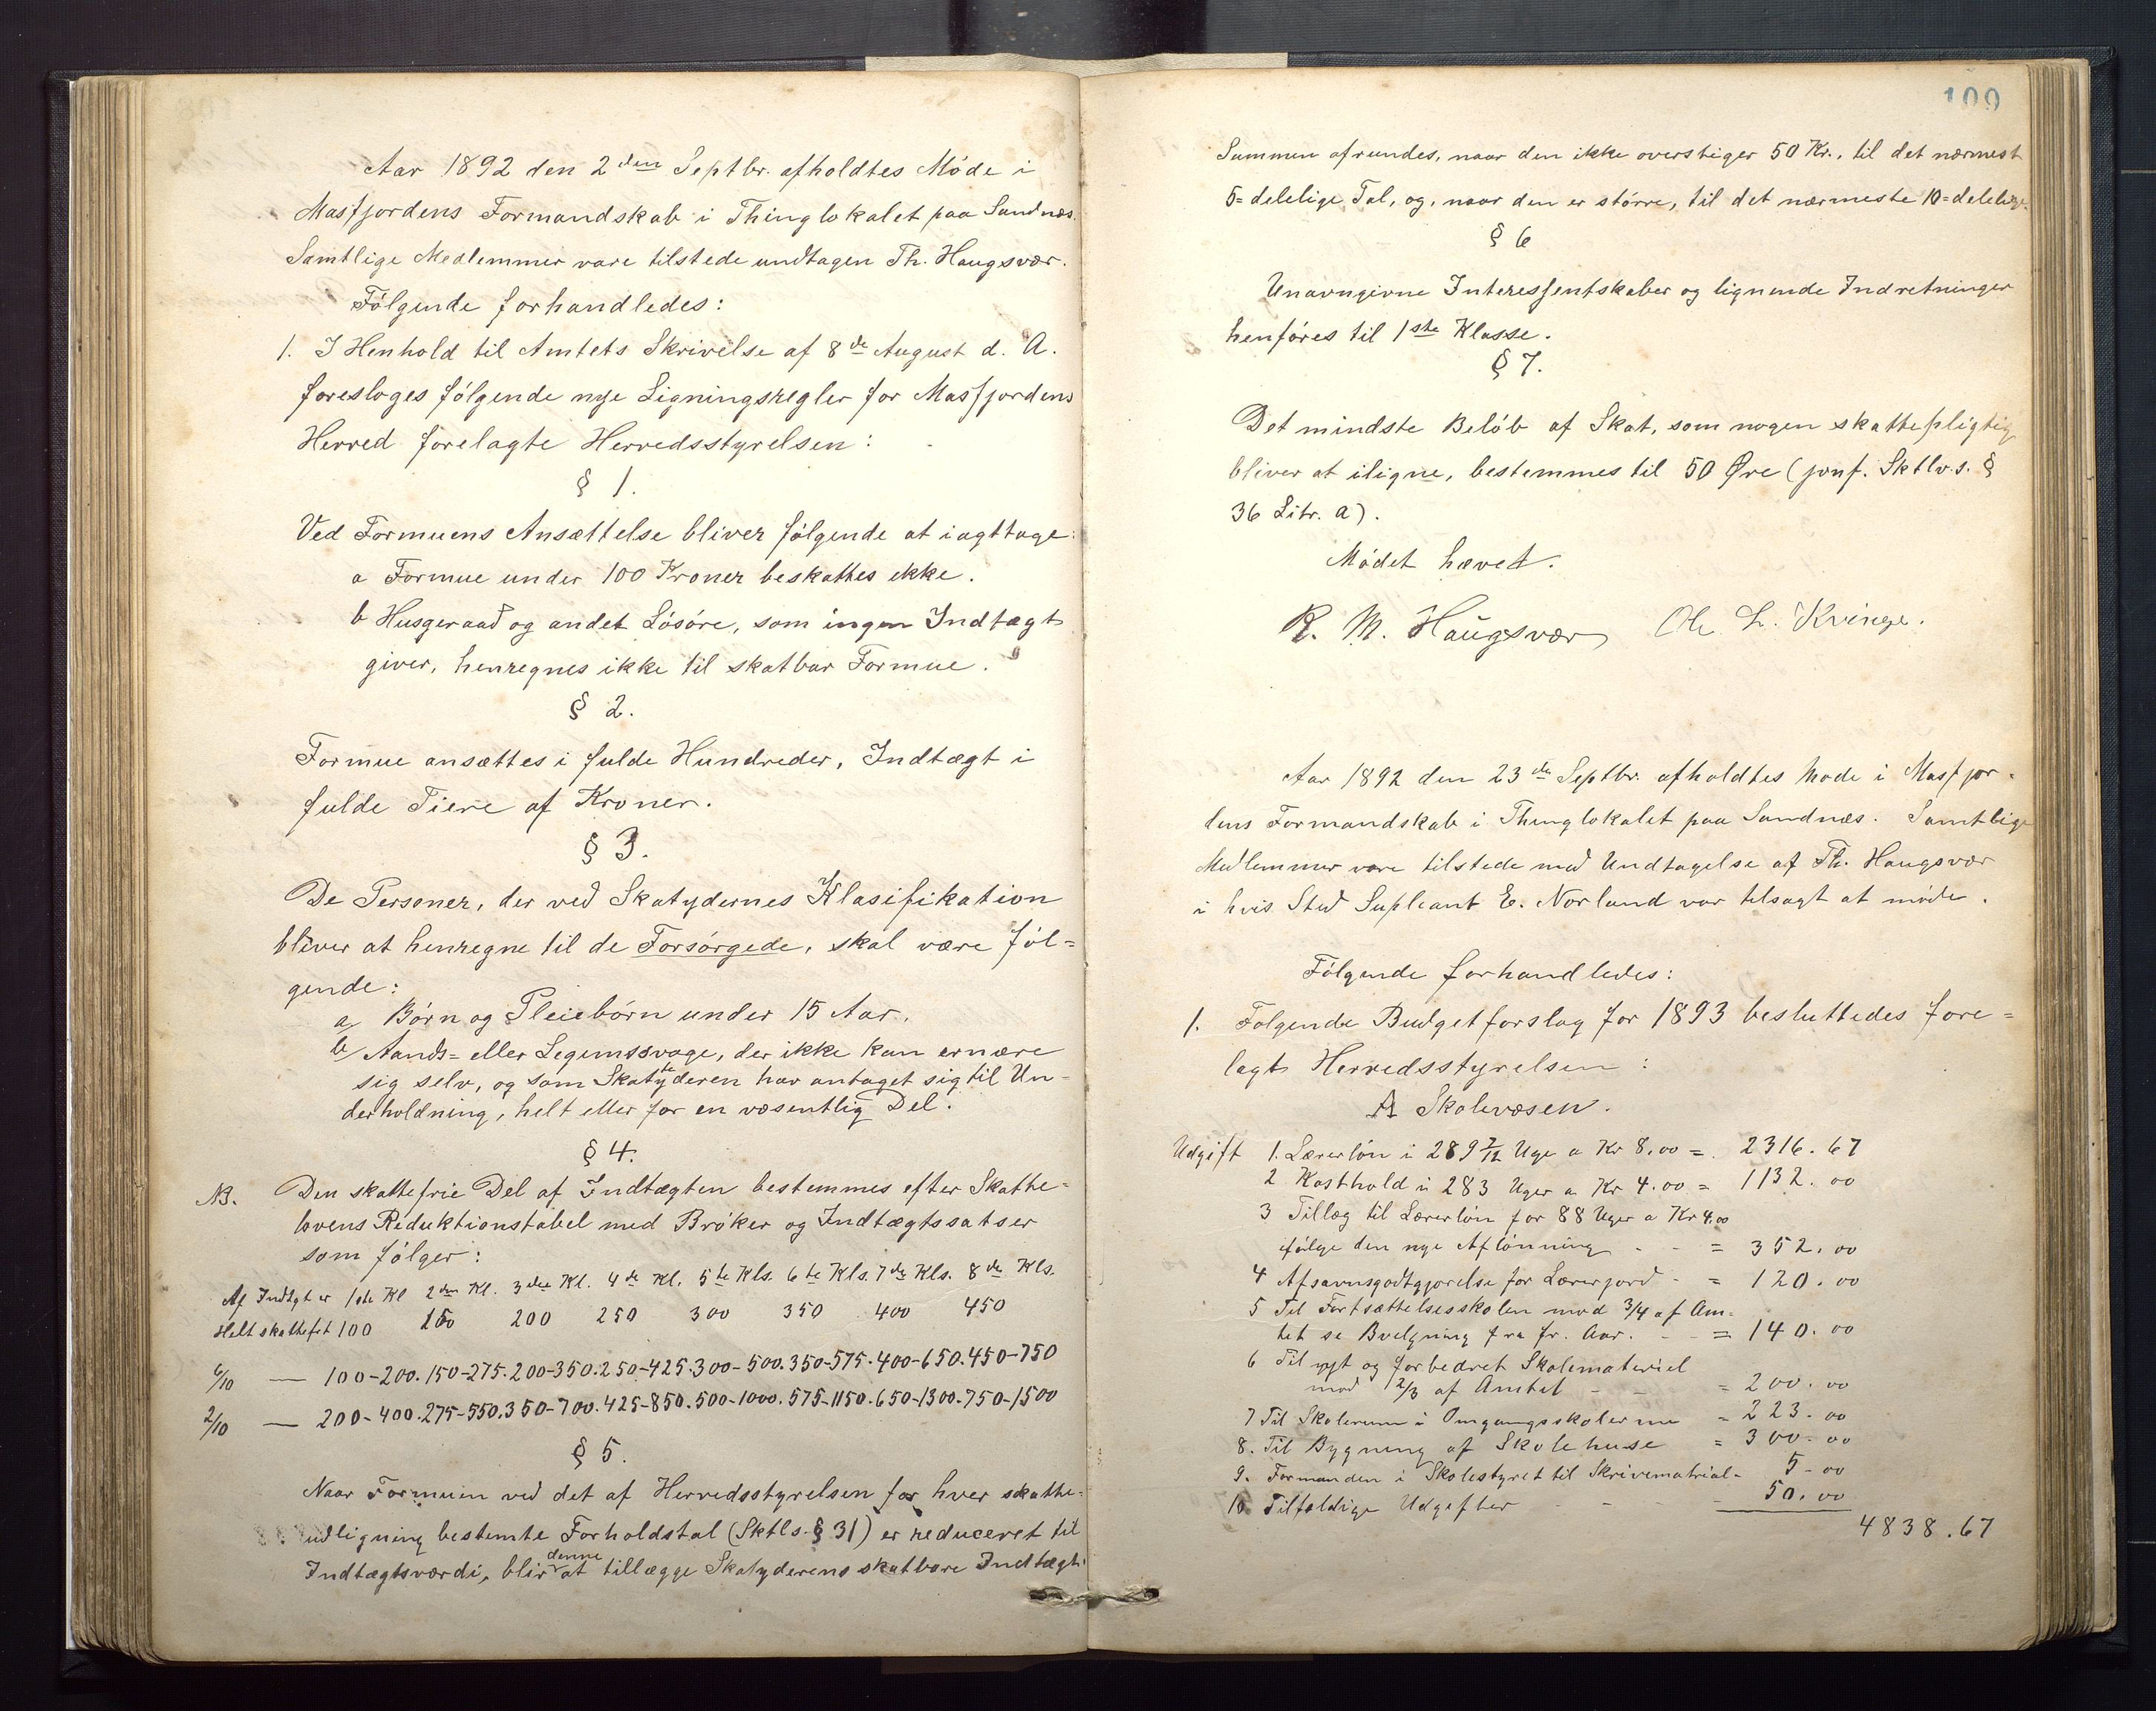 Aar 1892 den 2den Septbr. afholdtes Møde i
Masfjordens Formandskab i Thinglokalet paa Sandnæs.
Samtlige Medlemmer vare tilstede undtagen Th. Haugsvær.
Følgende forhandledes:
1. I Henhold til Amtets Skrivelse af 8de August d. A.
foresloges følgende nye Ligningsregler for Masfjordens
Herred forelagte Herredsstyrelsen:
§ 1.
Ved Formuens Ansættelse bliver følgende at iagttage:
a Formue under 100 Kroner beskattes ikke.
b Husgeraad og andet Løsøre, som ingen Indtægt
giver, henregnes ikke til skatbar Formue.
§ 2.
Formue ansættes i fulde Hundreder, Indtægt i
fulde Tiere af Kroner.
§ 3.
De Personer, der ved Skatydernes Klasifikation
bliver at henregne til de Forsørgede, skal være føl=
gende:
a, Børn og Pleiebørn under 15 Aar.
b, Aands= eller Legemssvage, der ikke kan ernære
sig selv, og som Skatteyderen har antaget sig til Un-
derholdning, helt eller for en væsentlig Del.
§ 4.
NB. Den skattefrie Del af Indtægten bestemmes efter Skatte=
lovens Reduktionstabel med Brøker og Indtægtssatser
som følger:
Af Indtgt er 1ste Kl 2den Kl. 3die Kl. 4de Kl. 5te Kls. 6te Kls. 7de Kls. 8de Kls.
Helt skattefrit 100 150 200 250 300 350 400 450
6/10 — 100-200. 150-275. 200-350. 250-425. 300-500. 350-575. 400-650. 450-750
2/10 — 200-400. 275-550. 350-700. 425-850. 500-1000. 575-1150. 650-1300. 750-1500
§ 5.
Naar Formuen ved det af Herredsstyrelsen for hver skatte=
udligning bestemte Forholdstal (Sktls. § 31) er reduceret til
Indtægtsværdi, blir denne at tillægge Skatyderens skatbare Indtægt.
109
Summen afrundes, naar den ikke overstiger 50 Kr., til det nærmest
5=delelige Tal, og, naar den er større, til det nærmeste 10=delelige.
§ 6
Unavngivne Interessentskaber og lignende Indretninger
henføres til 1ste Klasse.
§ 7.
Det mindste Beløb af Skat, som nogen skattepligtig
bliver at iligne, bestemmes til 50 Øre (jvnf. Sktlvs. §
36 Litr. a).
Mødet hævet.
R. M. Haugsvær Ole L. Kvinge.
Aar 1892 den 23de Septbr. afholdtes Møde i Masfjor-
dens Formandskab i Thinglokalet paa Sandnæs. Samtlige
Medlemmer vare tilstede med Undtagelse af Th. Haugsvær
i hvis Sted Supleant E. Norland var tilsagt at møde.
Følgende forhandledes:
1. Følgende Budgetforslag for 1893 besluttedes fore=
lagt Herredsstyrelsen:
A Skolevæsen.
Udgift 1. Lærerløn i 289 7/12 Uge a Kr 8.00 = 2316.67
2 Kosthold i 283 Uger a Kr 4.00 = 1132.00
3 Tillæg til Lærerløn for 88 Uger a Kr 4.00
ifølge den nye Aflønning - - = 352.00
4 Afsavnsgodtgjørelse for Lærerjord - = 120.00
5 Til Fortsættelsesskolen mod 3/4 af Am-
tet se Bvelgning fra fr. Aar. - - = 140.00
6 Til nyt og forbedret Skolemateriel
mod 2/3 af Amtet - - = 200.00
7 Til Skolerum i Omgangsskolerne = 223.00
8. Til Bygning af Skolehuse = 300.00
9. Formanden i Skolestyret til Skrivematrial- 5-00
10 Tilfældige Udgifter - - - - 50.00
4838.67